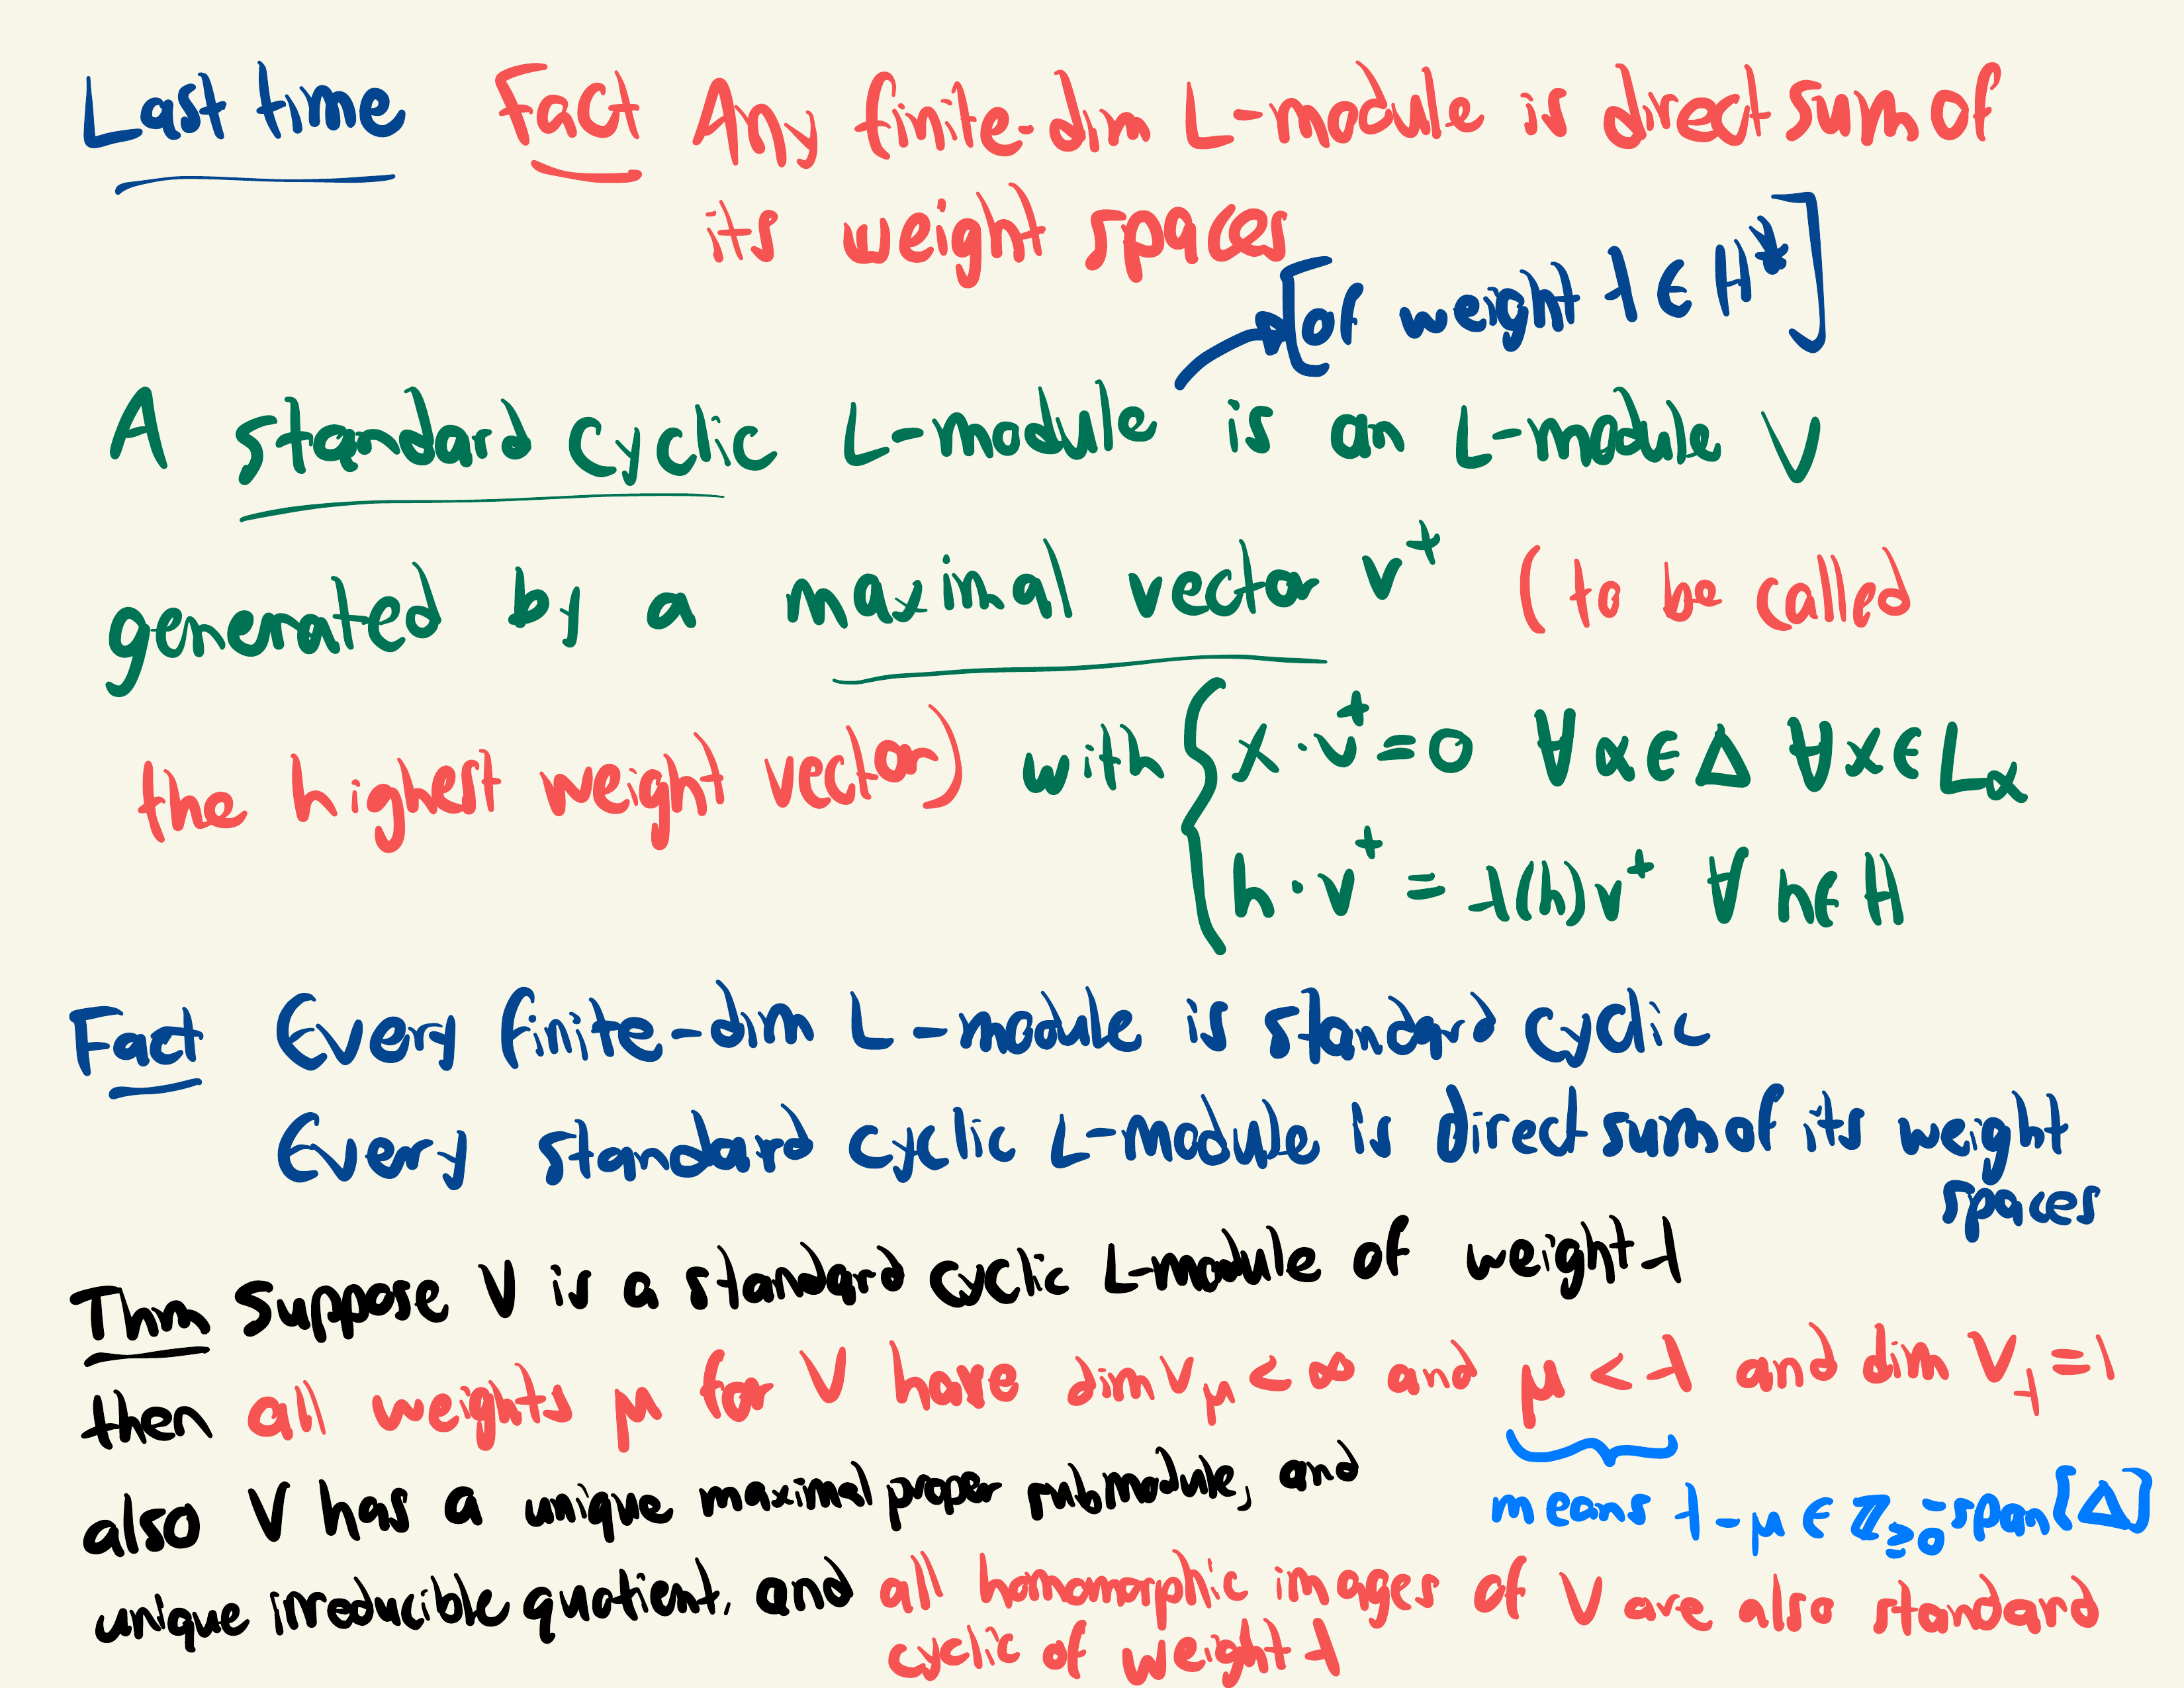 Last time Fact Any finite-dim L-module is direct sum of
its weight spaces
[of weight λ ∈ H*]
A standard cyclic L-module is an L-module V
generated by a maximal vector v⁺ (to be called
the highest weight vector) with { x·v⁺ = 0 ∀ α ∈ Δ ∀ x ∈ L_α
h·v⁺ = λ(h)v⁺ ∀ h ∈ H
Fact Every finite-dim L-module is standard cyclic
Every standard cyclic L-module is direct sum of its weight
spaces
Thm Suppose V is a standard cyclic L-module of weight λ
then all weights μ for V have dim V_μ < ∞ and μ < λ and dim V_λ = 1
also V has a unique maximal proper submodule, and
means λ-μ ∈ ℤ_≥0-span{Δ}
unique irreducible quotient. and all homomorphic images of V are also standard
cyclic of weight λ